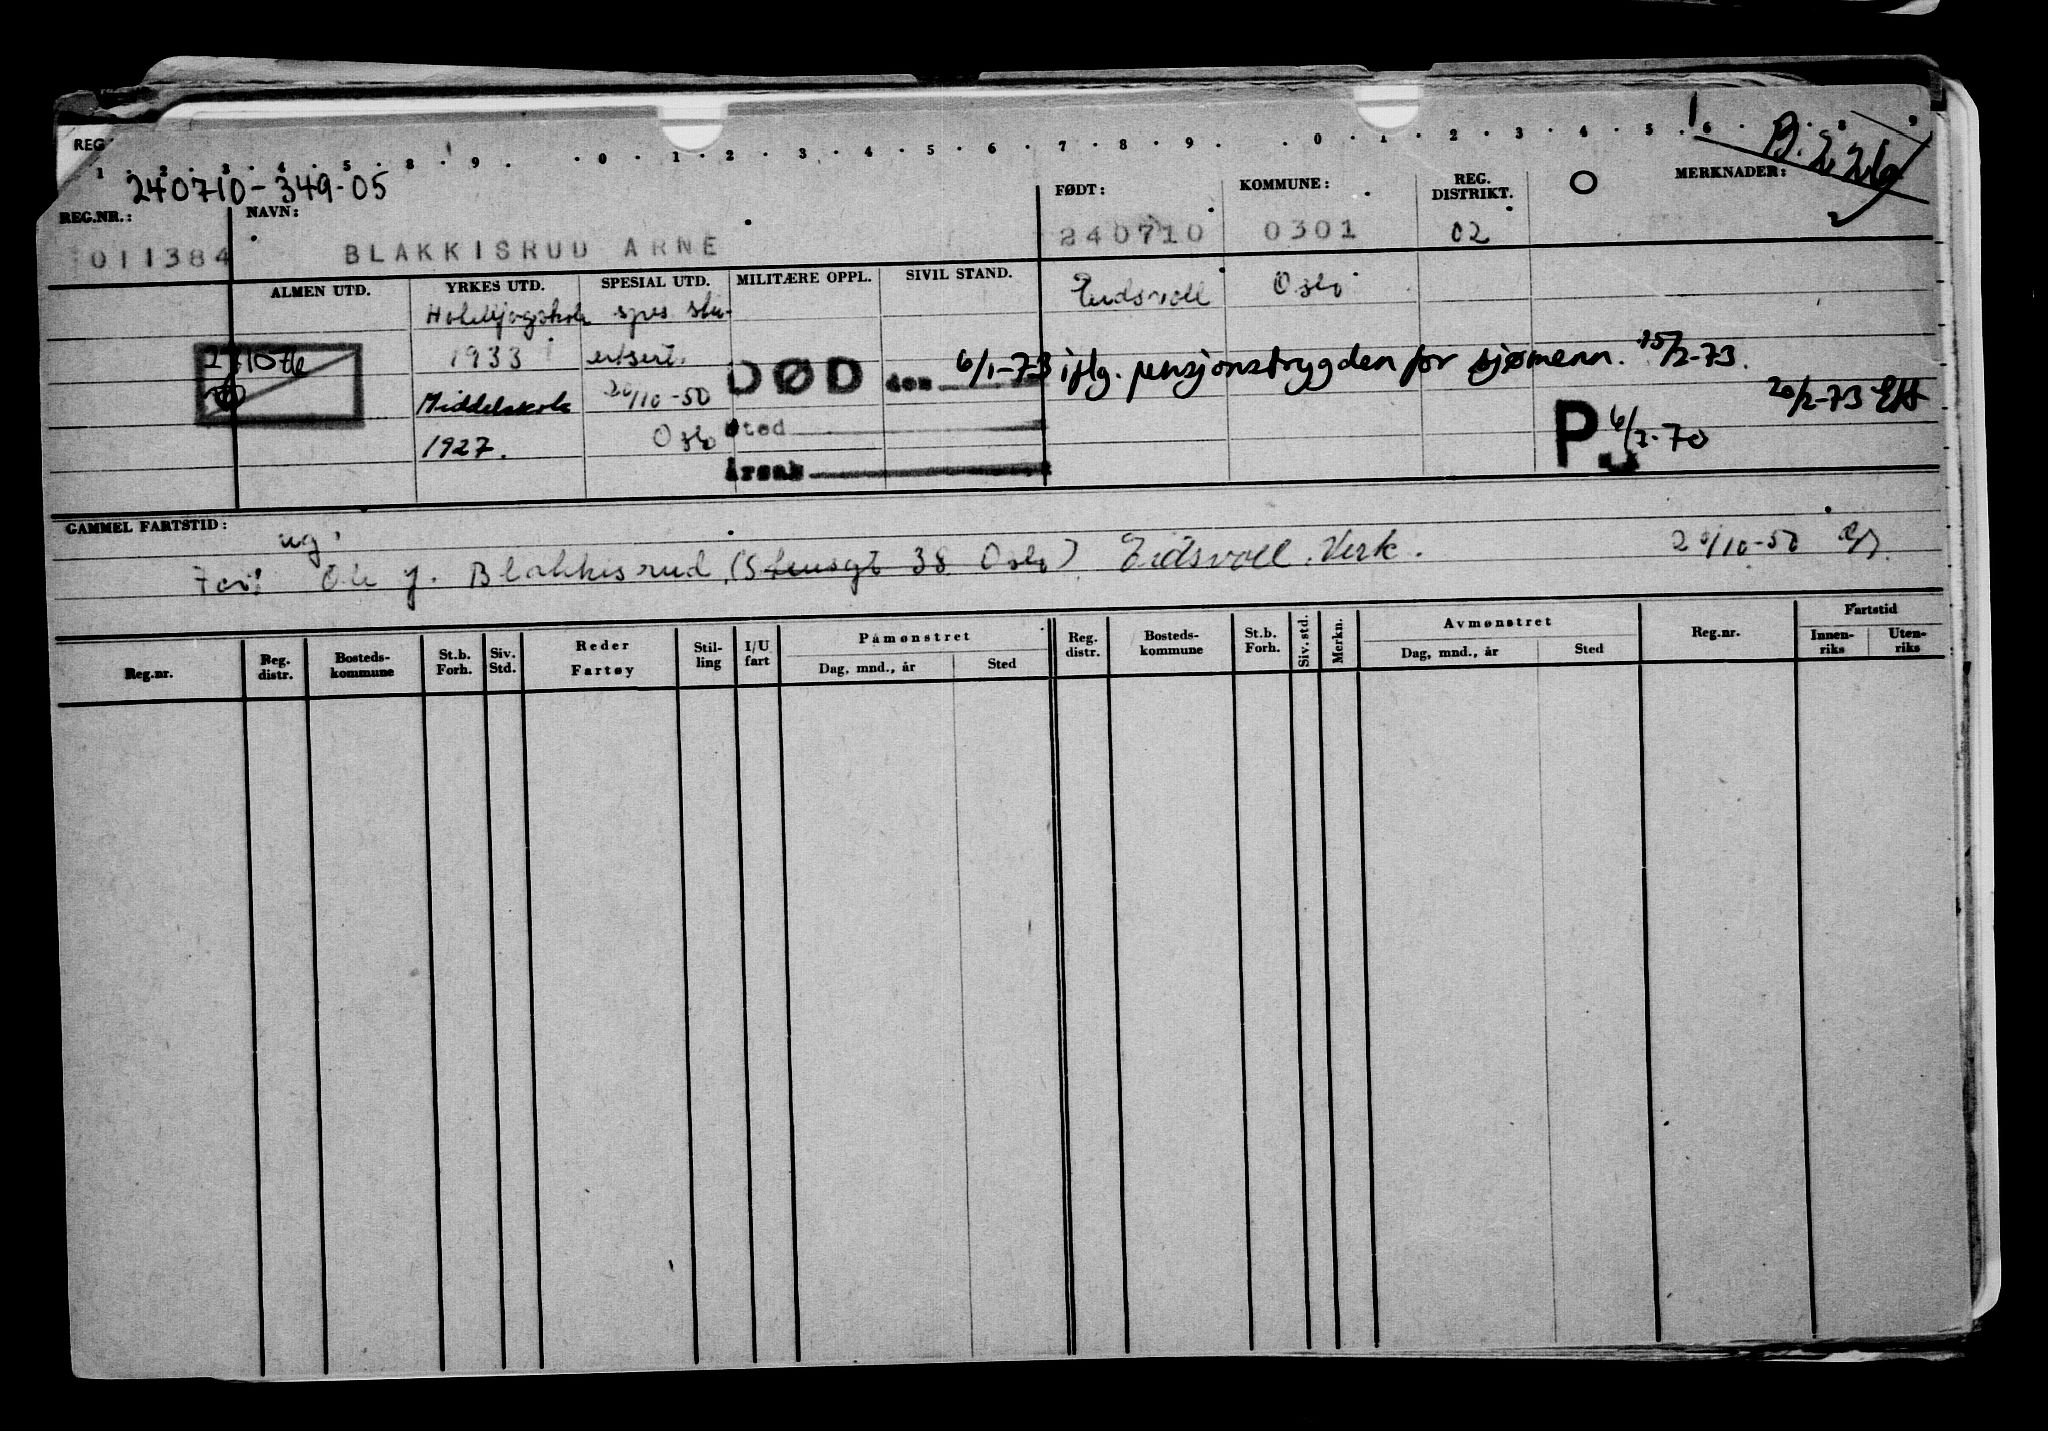 REG
1 . 2 . 3 . 4 . 5 . 8 . 9 . . 0 . 1 . 2 . 3 . 4 . 5 . 6 . 7 . 8 . 9 . . 0 . 1 . 2 . 3 . 4 . 5 . 6 . 8 9
240710-349-05
REG.NR.:
NAVN:
FØDT:
KOMMUNE:
REG. DISTRIKT.
O
MERKNADER:
011384
BLAKKISRUD ARNE
240710
0301
02
ALMEN UTD.
YRKES UTD.
SPESIAL UTD.
MILITÆRE OPPL.
SIVIL STAND.
Eidsvoll
Oslo
spes stu-
1933
ertsert.
DØD den 6/1-73 iflg. pensjonstrygden for sjømenn. 15/2-73.
Middelskole
20/10-50
20/2-73
1927.
Oslo
Sted
P 6/7-70
Årsak
GAMMEL FARTSTID:
ug.
Far: Ole J. Blakkisrud (Stensgt 38 Oslo) Eidsvoll Verk. 20/10-50
Reg.nr.
Reg. distr.
Bosteds-kommune
St.b. Forh.
Siv. Std.
Reder
Fartøy
Stil-ling
I/U fart
Påmønstret
Dag, mnd., år
Sted
Reg. distr.
Bosteds-kommune
St.b. Forh.
Siv. std.
Merkn.
Avmønstret
Dag, mnd., år
Sted
Reg.nr.
Fartstid
Innen-riks
Uten-riks